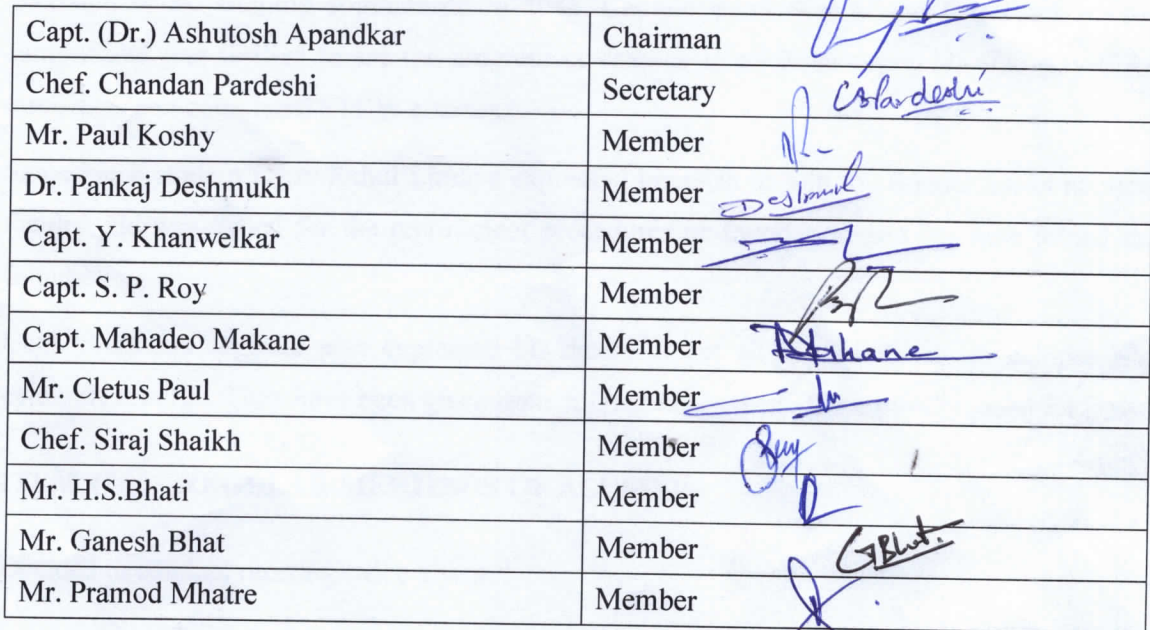 Capt. (Dr.) Ashutosh Apandkar Chairman
Chef. Chandan Pardeshi Secretary CPardeshi
Mr. Paul Koshy Member
Dr. Pankaj Deshmukh Member Deshmukh
Capt. Y. Khanwelkar Member
Capt. S. P. Roy Member
Capt. Mahadeo Makane Member Makane
Mr. Cletus Paul Member
Chef. Siraj Shaikh Member
Mr. H.S.Bhati Member
Mr. Ganesh Bhat Member GBhat.
Mr. Pramod Mhatre Member